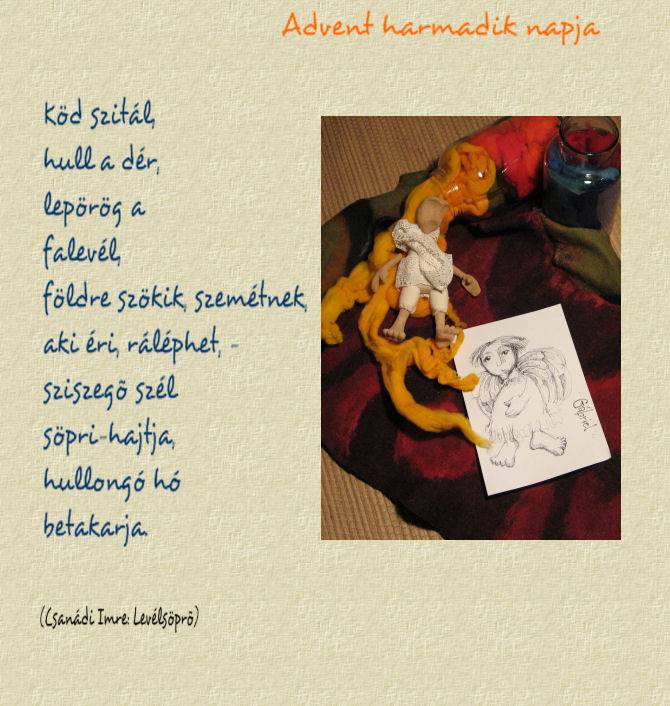 Advent harmadik napja
Köd szitál,
hull a dér,
lepörög a
falevél,
földre szökik, szemétnek,
aki éri, ráléphet, -
sziszegõ szél
söpri-hajtja,
hullongó hó
betakarja.
Gábriel
(Csanádi Imre: Levélsöprõ)